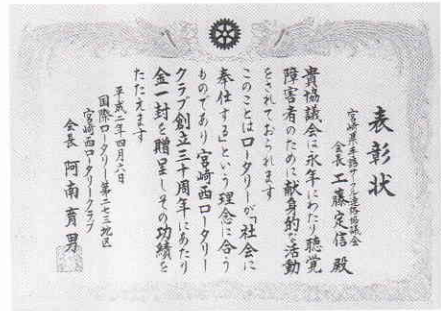 表彰状
宮崎県手話サークル連絡協議会
会長 工藤定信 殿
貴協議会に永年にわたり聴覚
障害者のために献身的な活動
をされておられます
このことはロータリーが「社会に
奉仕する」という理念に合う
ものであり宮崎西ロータリー
クラブ創立三十周年にあたり
金一封を贈呈しその功績を
たたえます
平成二年四月六日
国際ロータリー第二七三地区
宮崎西ロータリークラブ
会長 阿南育男